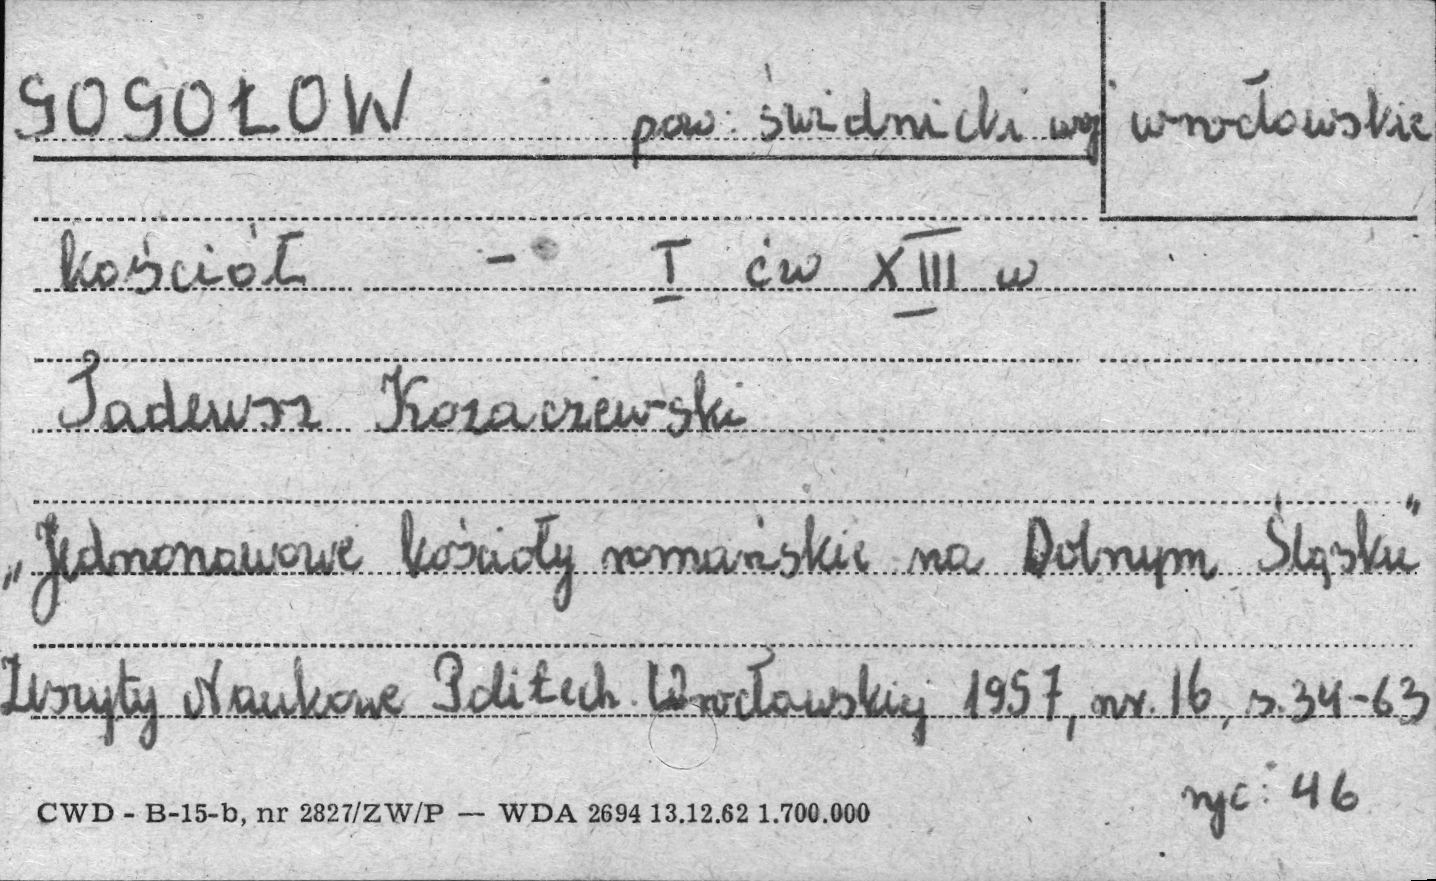 GOGOŁOW pow: świdnicki woj wrocławskie
kościół - I ćw XIII w
Tadeusz Kozaczewski
„Jednonawowe kościoły romańskie na Dolnym Śląsku"
Zeszyty Naukowe Politech. Wrocławskiej 1957, nr. 16, s. 34-63
ryc: 46
CWD - B-15-b, nr 2827/ZW/P — WDA 2694 13.12.62 1.700.000